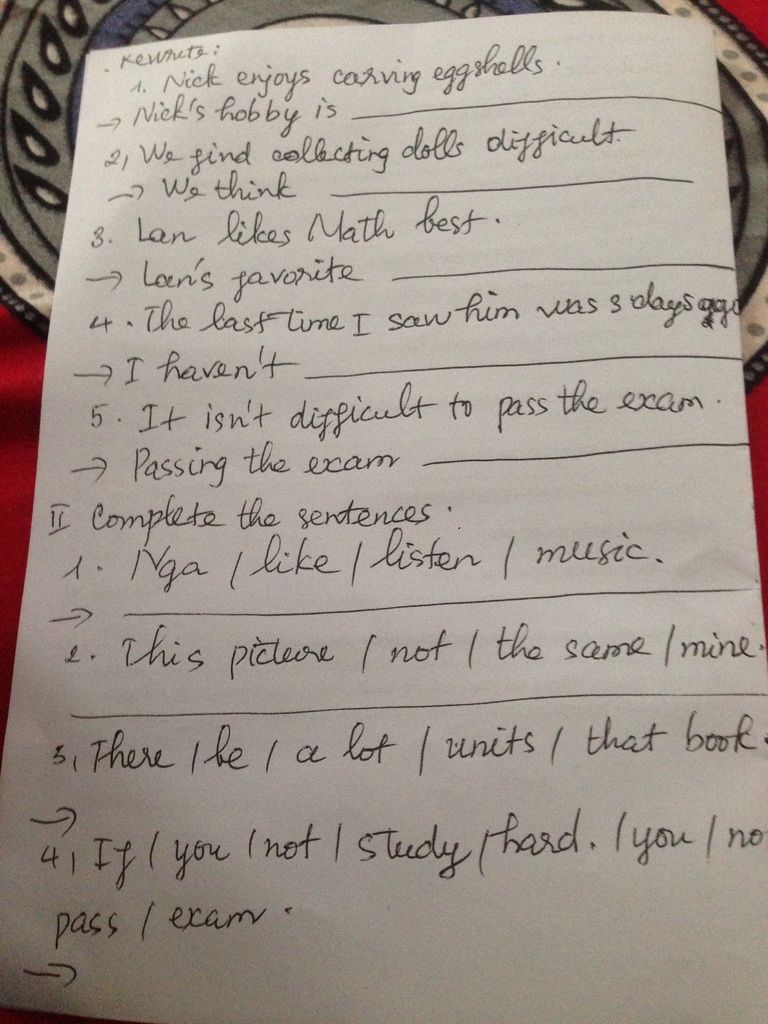 . Rewrite:
1. Nick enjoys carving eggshells.
→ Nick's hobby is
2, We find collecting dolls difficult.
→ We think
3. Lan likes Math best.
→ Lan's favorite
4. The last time I saw him was 3 days ago
→ I haven't
5. It isn't difficult to pass the exam.
→ Passing the exam
II Complete the sentences.
1. Nga / like / listen / music.
→
2. This picture / not / the same / mine.
3, There / be / a lot / units / that book.
→
4, If / you / not / study / hard. / you / no
pass / exam.
→